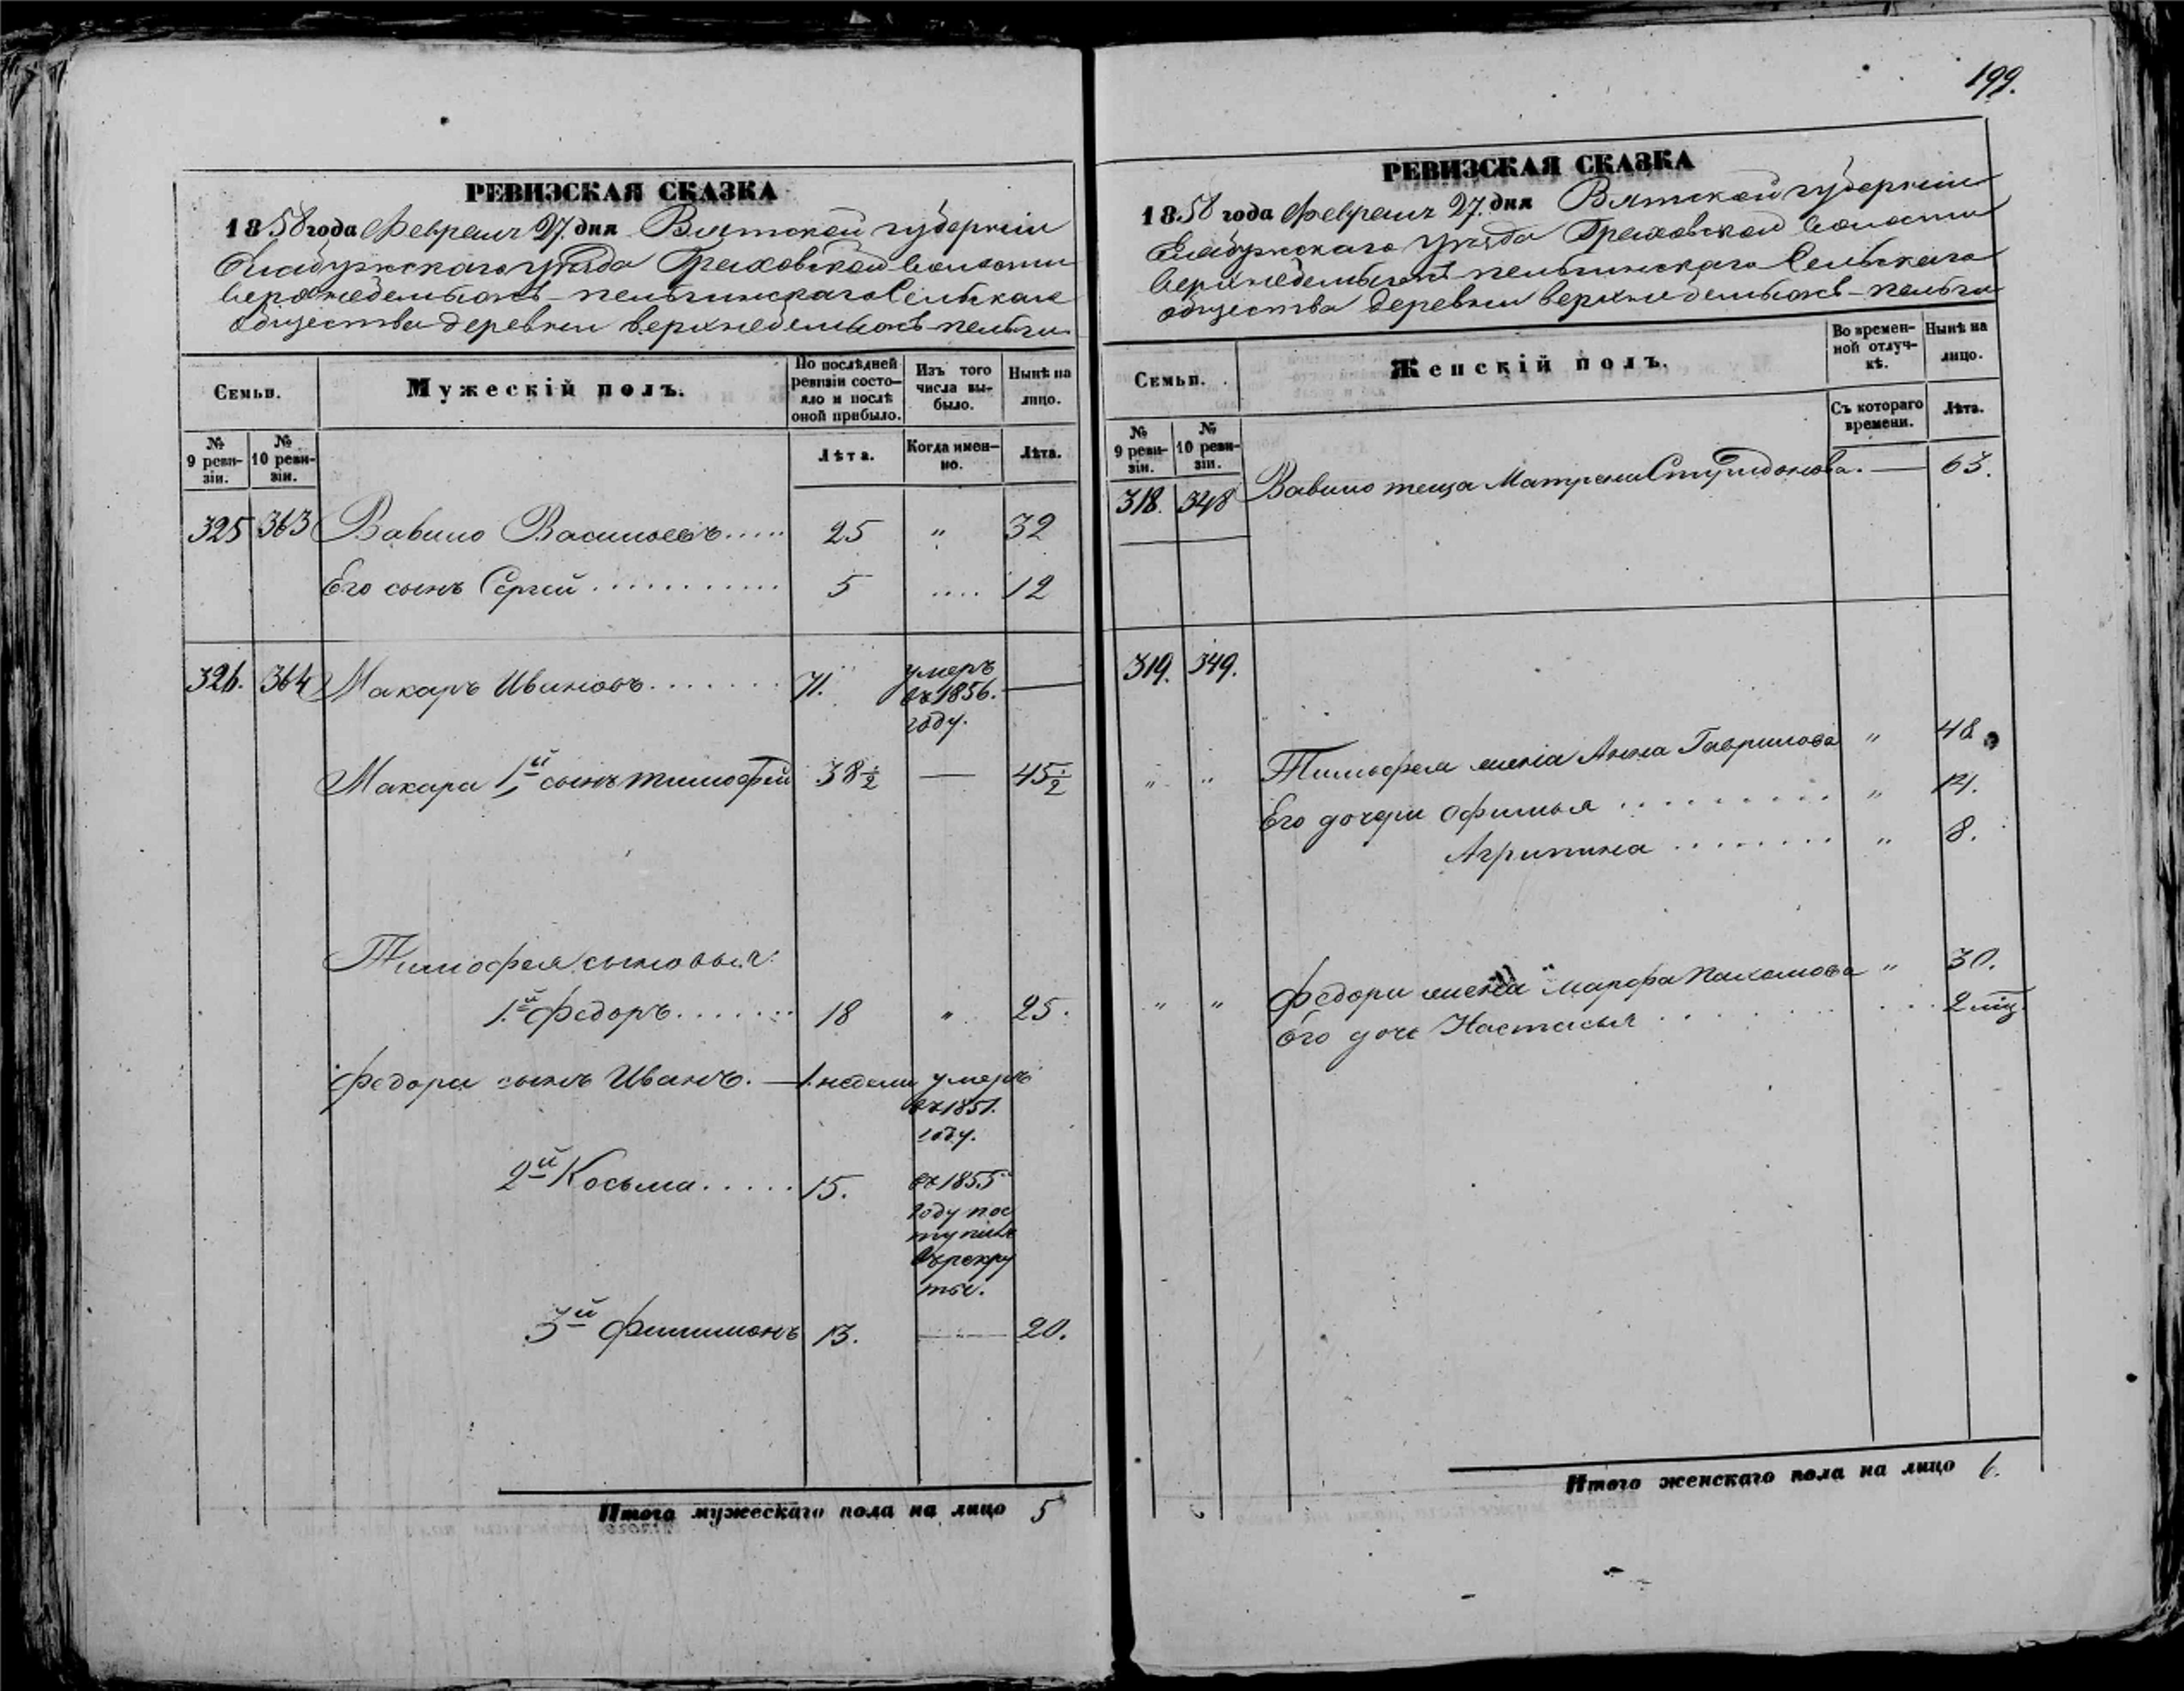 199.
РЕВИЗСКАЯ СКАЗКА
1858 года Февраля 27. дня Вятской губерніи
Елабужскаго уѣзда Граховской волости
верхнедемыонъ-пельгинскаго Сельскаго
общества деревни верхнедемыонъ-пельги
Семьи.
Мужескій полъ.
По послѣдней ревизіи состояло и послѣ оной прибыло.
Изъ того числа выбыло.
Нынѣ на лицо.
№ 9 ревизіи.
№ 10 ревизіи.
Лѣта.
Когда именно.
Лѣта.
325 363 Вавило Васильевъ..... 25 " 32
Его сынъ Сергей........... 5 .... 12
326. 364 Макаръ Ивановъ....... 71. умеръ въ 1856. году. —
Макара 1й сынъ тимофей 38½ — 45½
Тимофея сыновья:
1.й федоръ....... 18 " 25.
федора сынъ Иванъ. — 1. недели умеръ въ 1851. году.
2й Косьма..... 15. въ 1855 году поступилъ въ рекруты.
3й филимонъ 13. — 20.
Итого мужескаго пола на лицо 5
РЕВИЗСКАЯ СКАЗКА
1858 года Февраля 27. дня Вятской губерніи
Елабужскаго уѣзда Граховской волости
верхнедемыонъ-пельгинскаго Сельскаго
общества деревни верхнедемыонъ-пельги
Семьи.
Женскій полъ.
Во временной отлучкѣ.
Нынѣ на лицо.
№ 9 ревизіи.
№ 10 ревизіи.
Съ котораго времени.
Лѣта.
318. 348 Вавило теща Матрена Спиридонова. — 63.
319. 349.
" " Тимофея жена Анна Гаврилова " 48
Его дочери Офимья ......... " 14.
Агрипина ........ " 8.
" " федора жена марфа Пахомова " 30.
Его дочь Настасья ....... 2 мѣц.
Итого женскаго пола на лицо 6.